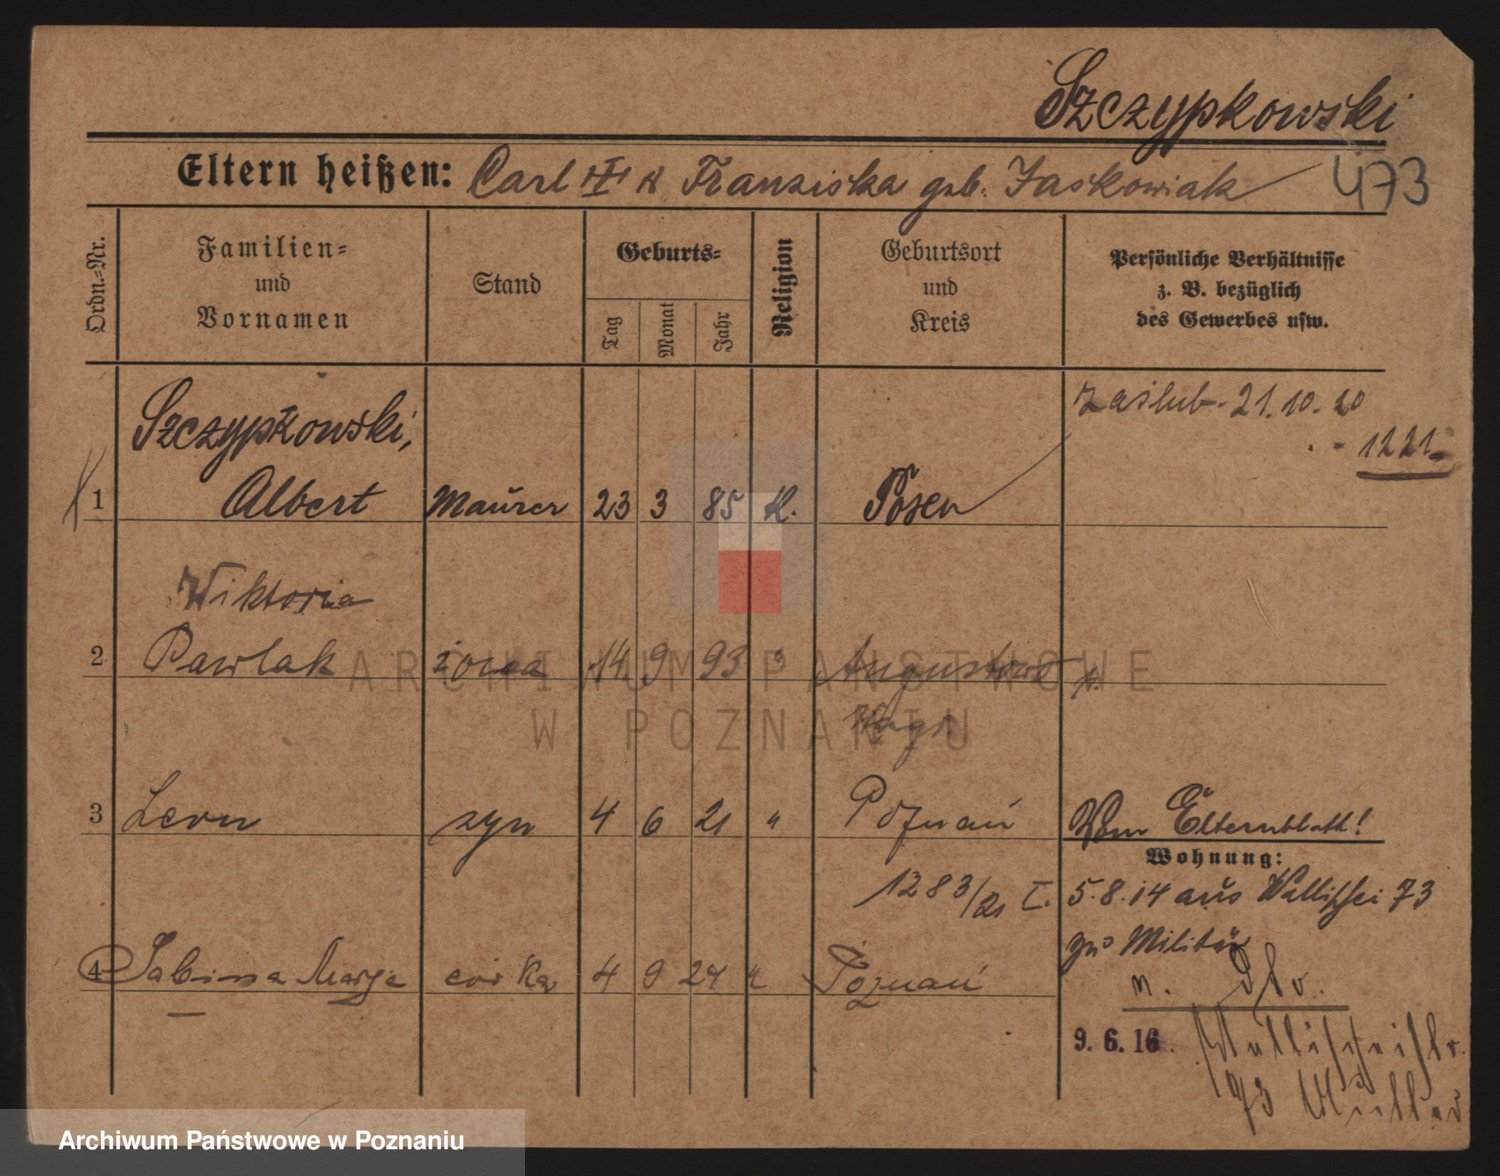 Szczypkowski
Eltern heißen: Carl u Franziska geb. Jaskowiak
473
Ordn.=Nr.
Familien=
und
Vornamen
Stand
Geburts=
Tag
Monat
Jahr
Religion
Geburtsort
und
Kreis
Persönliche Verhältnisse
z. B. bezüglich
des Gewerbes usw.
zaślub. 21.10.20
1221
Szczypkowski,
1 Albert Maurer 23 3 85 K. Posen
Wiktoria
2 Pawlak żona 14 9 93 " Augustowo p.
3 Leon syn 4 6 21 " Poznań
Vom Elternblatt!
Wohnung:
1283/21 I.
5.8.14 aus Wallischei 73
zu Militär
4 Sabina Marja córka 4 9 24 " Poznań
n.
9.6.16. Wallischeistr.
73 Mutter
ARCHIWUM PAŃSTWOWE
W POZNANIU
Archiwum Państwowe w Poznaniu